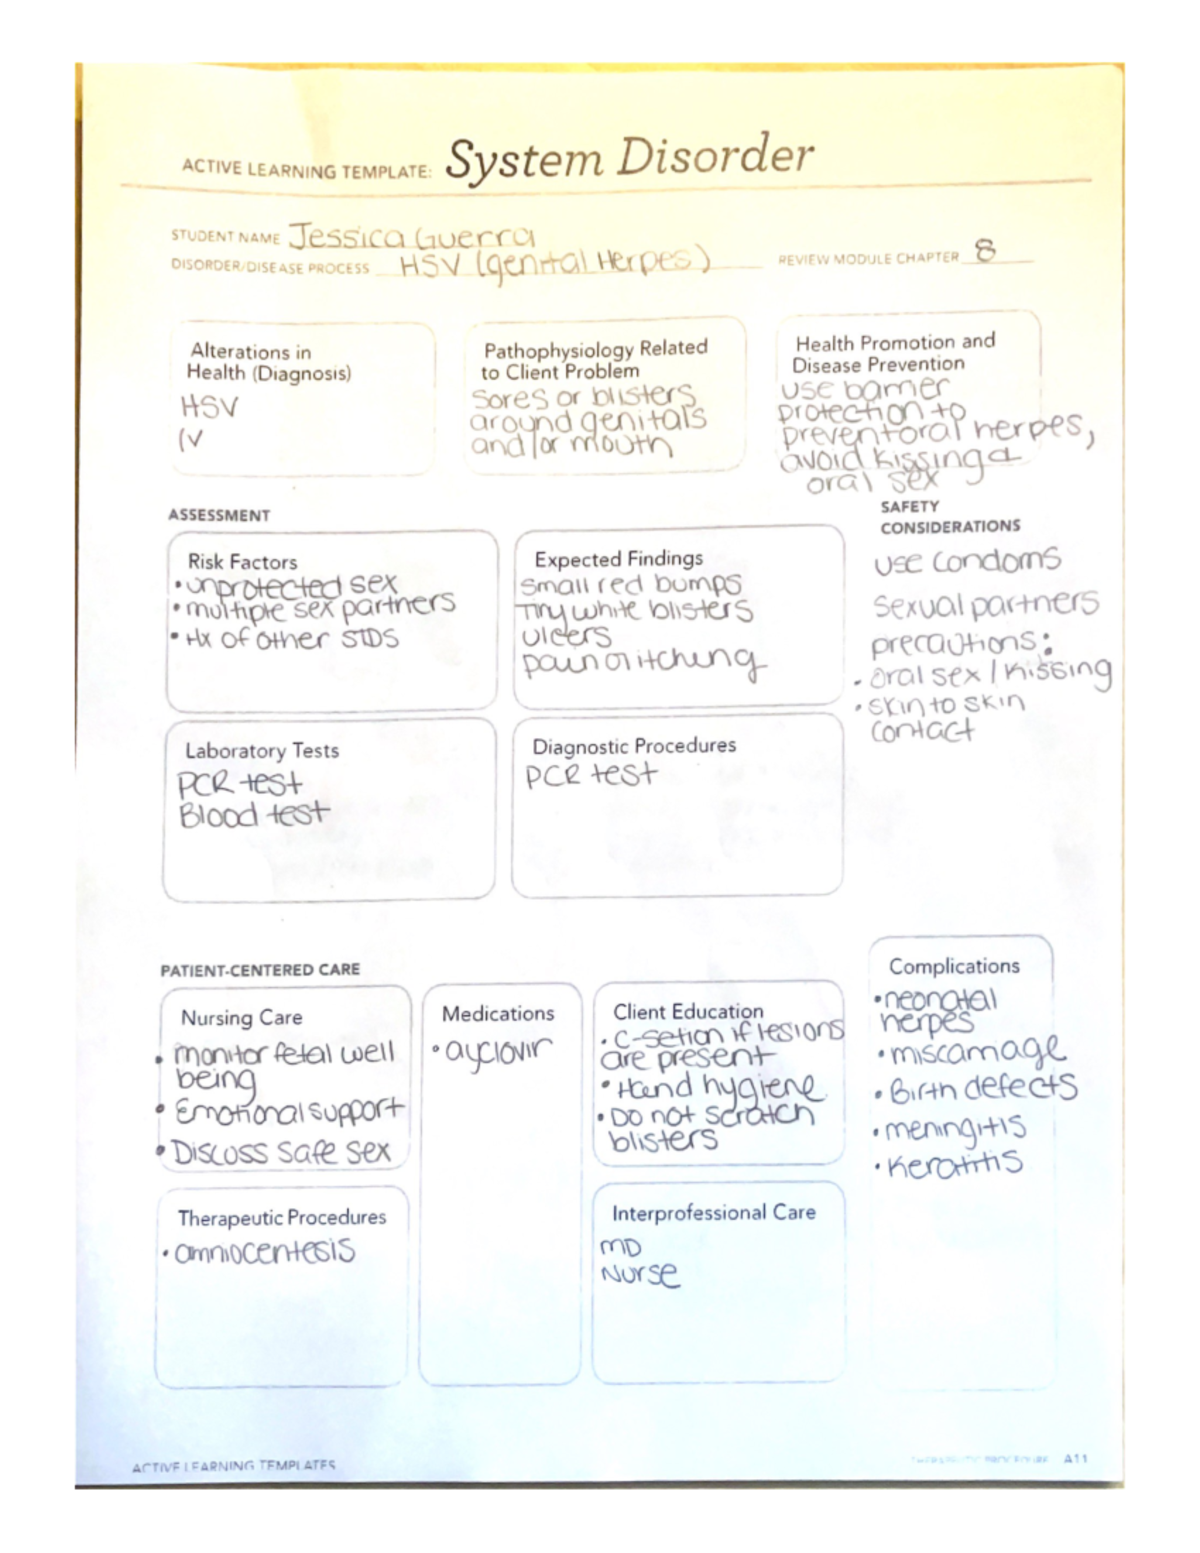 ACTIVE LEARNING TEMPLATE: System Disorder
STUDENT NAME Jessica Guerra
DISORDER/DISEASE PROCESS HSV (genital Herpes)
REVIEW MODULE CHAPTER 8
Alterations in
Health (Diagnosis)
HSV
Pathophysiology Related
to Client Problem
Sores or blisters
around genitals
and/or mouth
Health Promotion and
Disease Prevention
use barrier
protection to
prevent oral herpes,
avoid kissing &
oral sex
ASSESSMENT
Risk Factors
• unprotected sex
• multiple sex partners
• Hx of other STDS
Expected Findings
small red bumps
Tiny white blisters
ulcers
pain or itching
SAFETY
CONSIDERATIONS
use condoms
sexual partners
precautions:
• oral sex / kissing
• skin to skin
contact
Laboratory Tests
PCR test
Blood test
Diagnostic Procedures
PCR test
PATIENT-CENTERED CARE
Nursing Care
• monitor fetal well
being
• Emotional support
• Discuss safe sex
Medications
• ayclovir
Client Education
• C-setion if lesions
are present
• Hand hygiene
• Do not scratch
blisters
Complications
• neonatal
herpes
• miscarriage
• Birth defects
• meningitis
• Keratitis
Therapeutic Procedures
• amniocentesis
Interprofessional Care
MD
Nurse
ACTIVE LEARNING TEMPLATES
A11